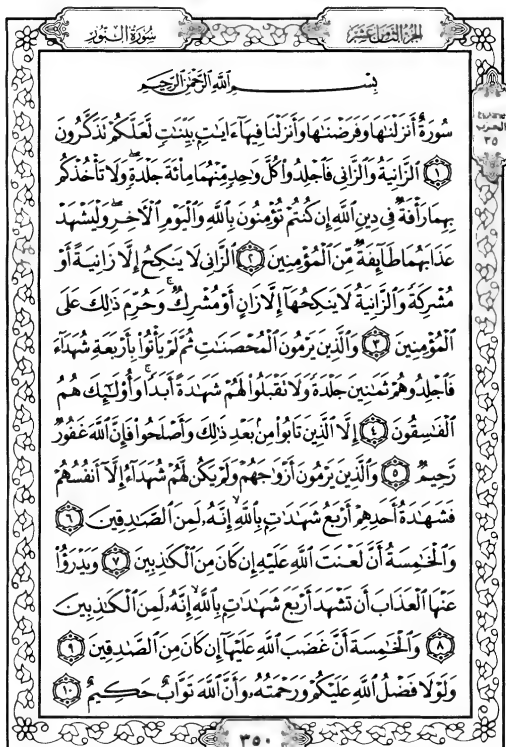 سُورَةُ النُّورِ
الجُزْءُ الثَّامِنَ عَشَرَ
بِسْمِ اللَّهِ الرَّحْمَنِ الرَّحِيمِ
سُورَةٌ أَنزَلْنَٰهَا وَفَرَضْنَٰهَا وَأَنزَلْنَا فِيهَآ ءَايَٰتِۭ بَيِّنَٰتٍ لَّعَلَّكُمْ تَذَكَّرُونَ
الحزب
٣٥
١ ٱلزَّانِيَةُ وَٱلزَّانِى فَٱجْلِدُوا۟ كُلَّ وَٰحِدٍ مِّنْهُمَا مِا۟ئَةَ جَلْدَةٍ ۖ وَلَا تَأْخُذْكُم
بِهِمَا رَأْفَةٌ فِى دِينِ ٱللَّهِ إِن كُنتُمْ تُؤْمِنُونَ بِٱللَّهِ وَٱلْيَوْمِ ٱلْءَاخِرِ ۖ وَلْيَشْهَدْ
عَذَابَهُمَا طَآئِفَةٌ مِّنَ ٱلْمُؤْمِنِينَ ٢ ٱلزَّانِى لَا يَنكِحُ إِلَّا زَانِيَةً أَوْ
مُشْرِكَةً وَٱلزَّانِيَةُ لَا يَنكِحُهَآ إِلَّا زَانٍ أَوْ مُشْرِكٌ ۚ وَحُرِّمَ ذَٰلِكَ عَلَى
ٱلْمُؤْمِنِينَ ٣ وَٱلَّذِينَ يَرْمُونَ ٱلْمُحْصَنَٰتِ ثُمَّ لَمْ يَأْتُوا۟ بِأَرْبَعَةِ شُهَدَآءَ
فَٱجْلِدُوهُمْ ثَمَٰنِينَ جَلْدَةً وَلَا تَقْبَلُوا۟ لَهُمْ شَهَٰدَةً أَبَدًا ۚ وَأُو۟لَٰٓئِكَ هُمُ
ٱلْفَٰسِقُونَ ٤ إِلَّا ٱلَّذِينَ تَابُوا۟ مِنۢ بَعْدِ ذَٰلِكَ وَأَصْلَحُوا۟ فَإِنَّ ٱللَّهَ غَفُورٌ
رَّحِيمٌ ٥ وَٱلَّذِينَ يَرْمُونَ أَزْوَٰجَهُمْ وَلَمْ يَكُن لَّهُمْ شُهَدَآءُ إِلَّآ أَنفُسُهُمْ
فَشَهَٰدَةُ أَحَدِهِمْ أَرْبَعُ شَهَٰدَٰتٍۭ بِٱللَّهِ ۙ إِنَّهُۥ لَمِنَ ٱلصَّٰدِقِينَ ٦
وَٱلْخَٰمِسَةُ أَنَّ لَعْنَتَ ٱللَّهِ عَلَيْهِ إِن كَانَ مِنَ ٱلْكَٰذِبِينَ ٧ وَيَدْرَؤُا۟
عَنْهَا ٱلْعَذَابَ أَن تَشْهَدَ أَرْبَعَ شَهَٰدَٰتٍۭ بِٱللَّهِ ۙ إِنَّهُۥ لَمِنَ ٱلْكَٰذِبِينَ
٨ وَٱلْخَٰمِسَةَ أَنَّ غَضَبَ ٱللَّهِ عَلَيْهَآ إِن كَانَ مِنَ ٱلصَّٰدِقِينَ ٩
وَلَوْلَا فَضْلُ ٱللَّهِ عَلَيْكُمْ وَرَحْمَتُهُۥ وَأَنَّ ٱللَّهَ تَوَّابٌ حَكِيمٌ ١٠
٣٥٠